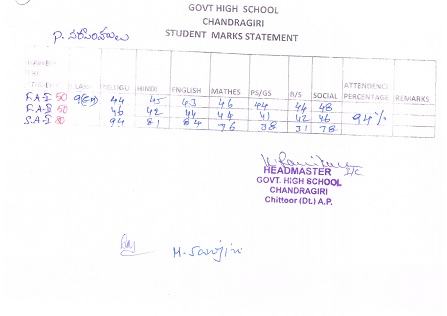 GOVT HIGH SCHOOL
CHANDRAGIRI
STUDENT MARKS STATEMENT
CLASS TELUGU HINDI ENGLISH MATHES PS/GS B/S SOCIAL ATTENDENCE PERCENTAGE REMARKS
F.A-I 50 9(EM) 44 45 43 46 44 44 48
F.A-II 50 46 42 44 44 41 42 46 94%
S.A-I 80 94 81 84 76 38 31 78
I/C
HEADMASTER
GOVT. HIGH SCHOOL
CHANDRAGIRI
Chittoor (Dt.) A.P.